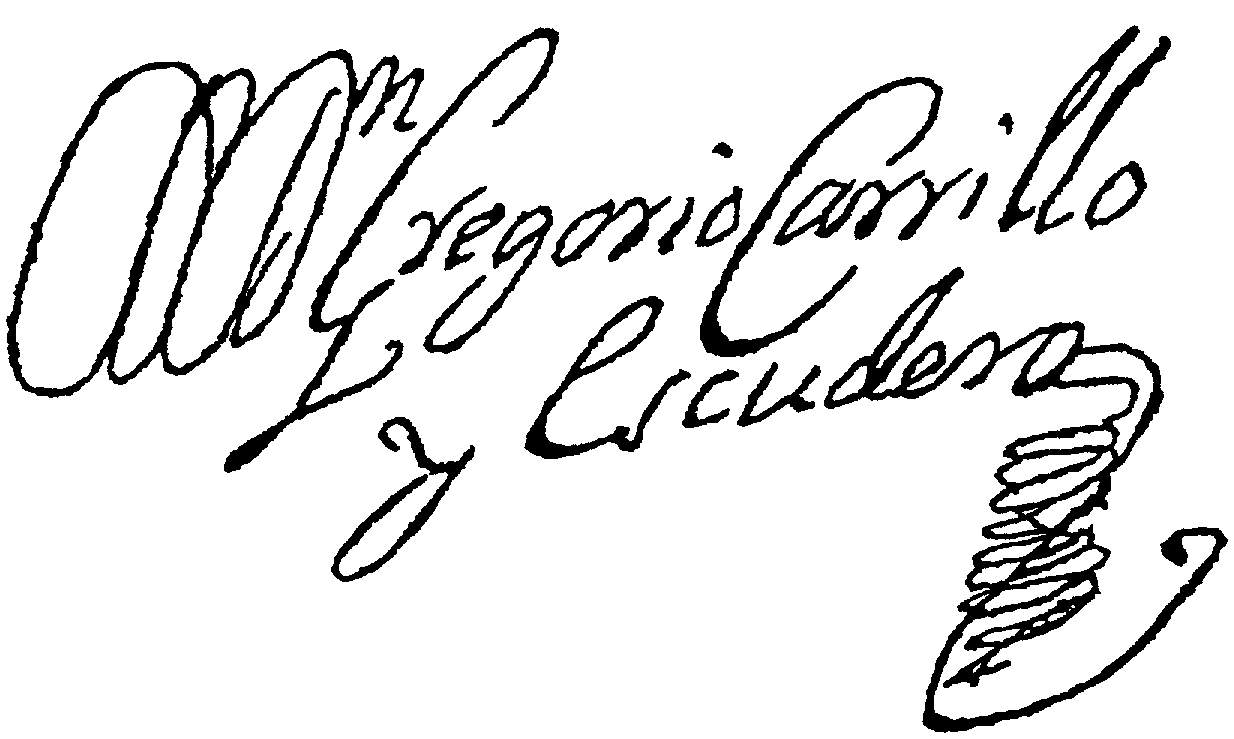 Mn Gregorio Carrillo
y Escudero